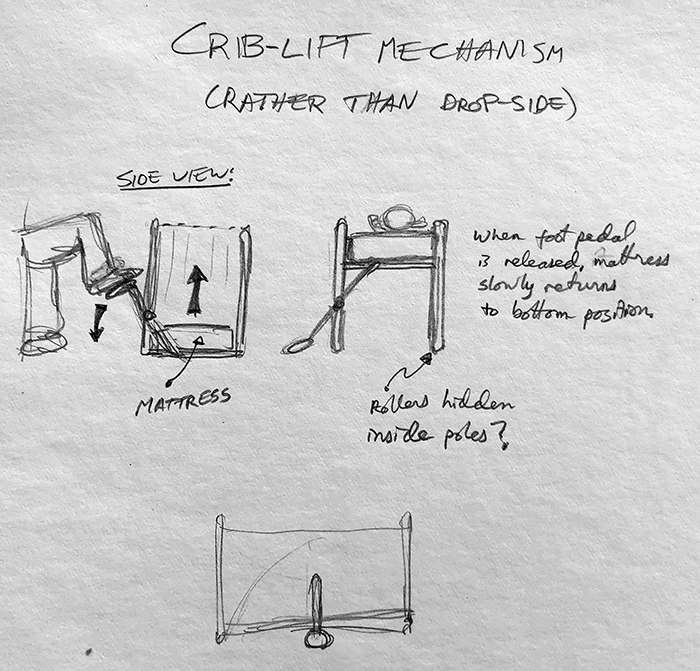 CRIB-LIFT MECHANISM
(RATHER THAN DROP-SIDE)
SIDE VIEW:
When foot pedal
is released, mattress
slowly returns
to bottom position.
MATTRESS
Rollers hidden
inside poles?